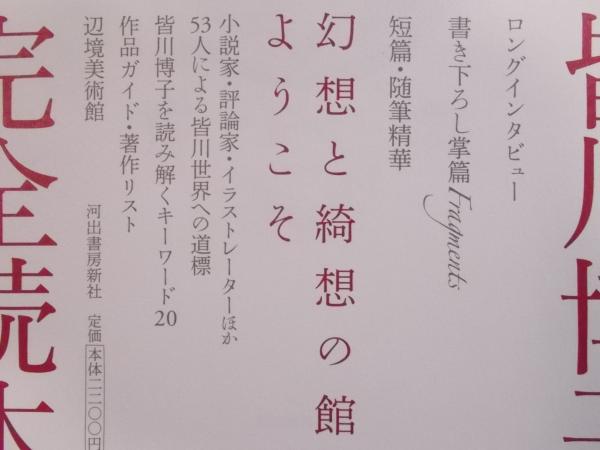 皆川博子
ロングインタビュー
書き下ろし掌篇Fragments
短篇・随筆精華
幻想と綺想の館
ようこそ
小説家・評論家・イラストレーターほか
53人による皆川世界への道標
皆川博子を読み解くキーワード20
作品ガイド・著作リスト
辺境美術館
河出書房新社 定価 本体二二〇〇円
完全読本